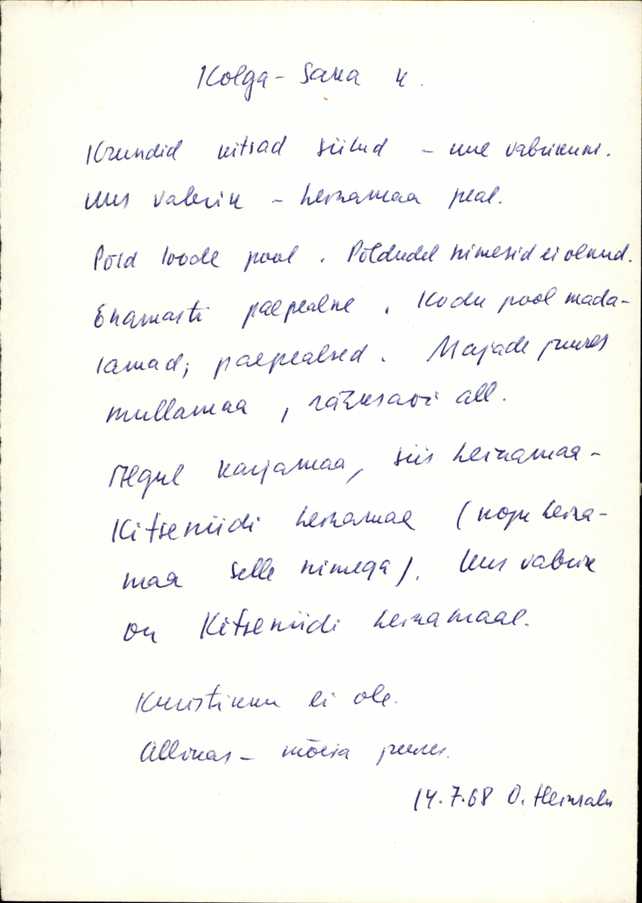 Kolga-Saka k.
Krundid kitsad siilud – uue vabrikuni.
Uus vabrik – heinamaa peal.
Põld loode pool. Põldudel nimesid ei olnud.
Enamasti paepealne. Kodu pool mada-
lamad; paepealsed. Majade juures
mullamaa, rähksavi all.
Algul karjamaa, siis heinamaa-
Kitseniidi heinamaa (kogu heina-
maa selle nimega). Uus vabrik
on Kitseniidi heinamaal.
Kuristikku ei ole.
Allikas – mõisa juures.
14.7.68 O. Heinsalu